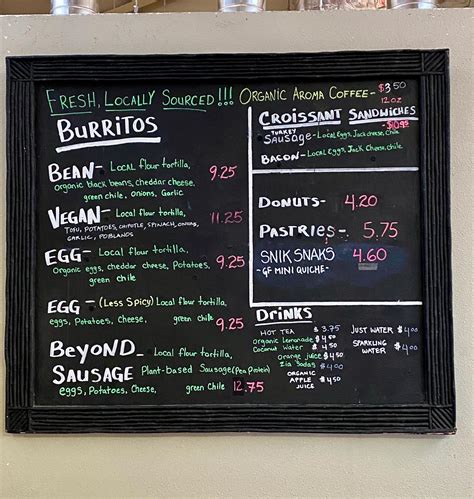 FRESH, LOCALLY SOURCED!!! ORGANIC AROMA COFFEE- $3.50
12oz
BURRITOS
BEAN- Local flour tortilla, 9.25
organic black beans, cheddar cheese,
green chile, onions, Garlic
VEGAN- Local flour tortilla, 11.25
TOFU, POTATOES, CHIPOTLE, SPINACH, ONIONS,
GARLIC, POBLANOS
EGG- Local flour tortilla,
Organic eggs, cheddar cheese, Potatoes, 9.25
green chile
EGG- (Less Spicy) Local flour tortilla,
eggs, Potatoes, Cheese, green chile 9.25
BEYOND_ Local flour tortilla,
SAUSAGE Plant-based Sausage (Pea Protein)
eggs, Potatoes, Cheese, green Chile 12.75
CROISSANT SANDWICHES
- $10.95
TURKEY
SAUSAGE- Local Eggs, Jack cheese, chile
BACON- Local Eggs, Jack Cheese, chile
DONUTS- 4.20
PASTRIES- 5.75
SNIK SNAKS 4.60
-GF MINI QUICHE-
DRINKS
HOT TEA $3.75
Organic Lemonade $4.50
Coconut Water $4.50
Orange juice $4.50
Zia Sodas $4.00
ORGANIC
APPLE $4.50
JUICE
JUST WATER $4.00
SPARKLING
WATER $4.00